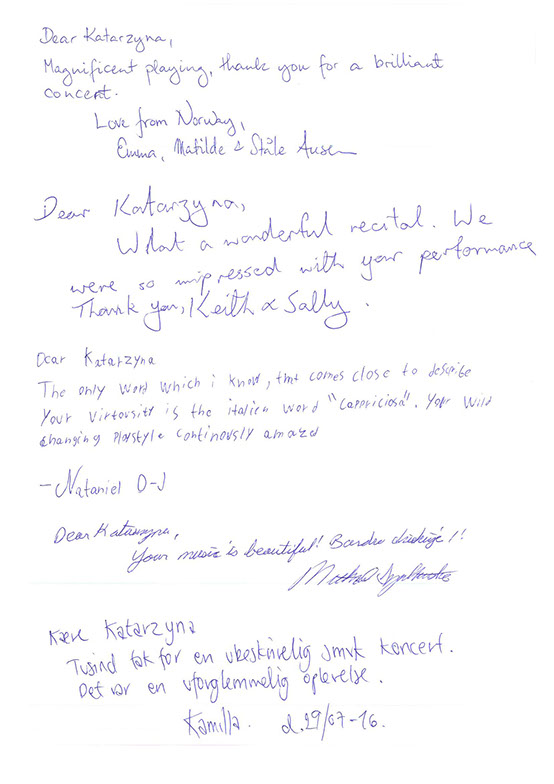 Dear Katarzyna,
Magnificent playing, thank you for a brilliant
concert.
Love from Norway,
Emma, Matilde & Ståle Ausen
Dear Katarzyna,
What a wonderful recital. We
were so impressed with your performance
Thank you, Keith & Sally.
Dear Katarzyna
The only word which i know, that comes close to describe
Your Virtorsity is the italien word "Cappriciosa". Your wild
changing playstyle continously amazd
-Nataniel D-J
Dear Katarzyna,
Your music is beautiful! Bardzo dziekuje!!
Kære Katarzyna
Tusind tak for en ubeskrivelig smuk koncert.
Det var en uforglemmelig oplevelse.
Kamilla. d.29/07-16.